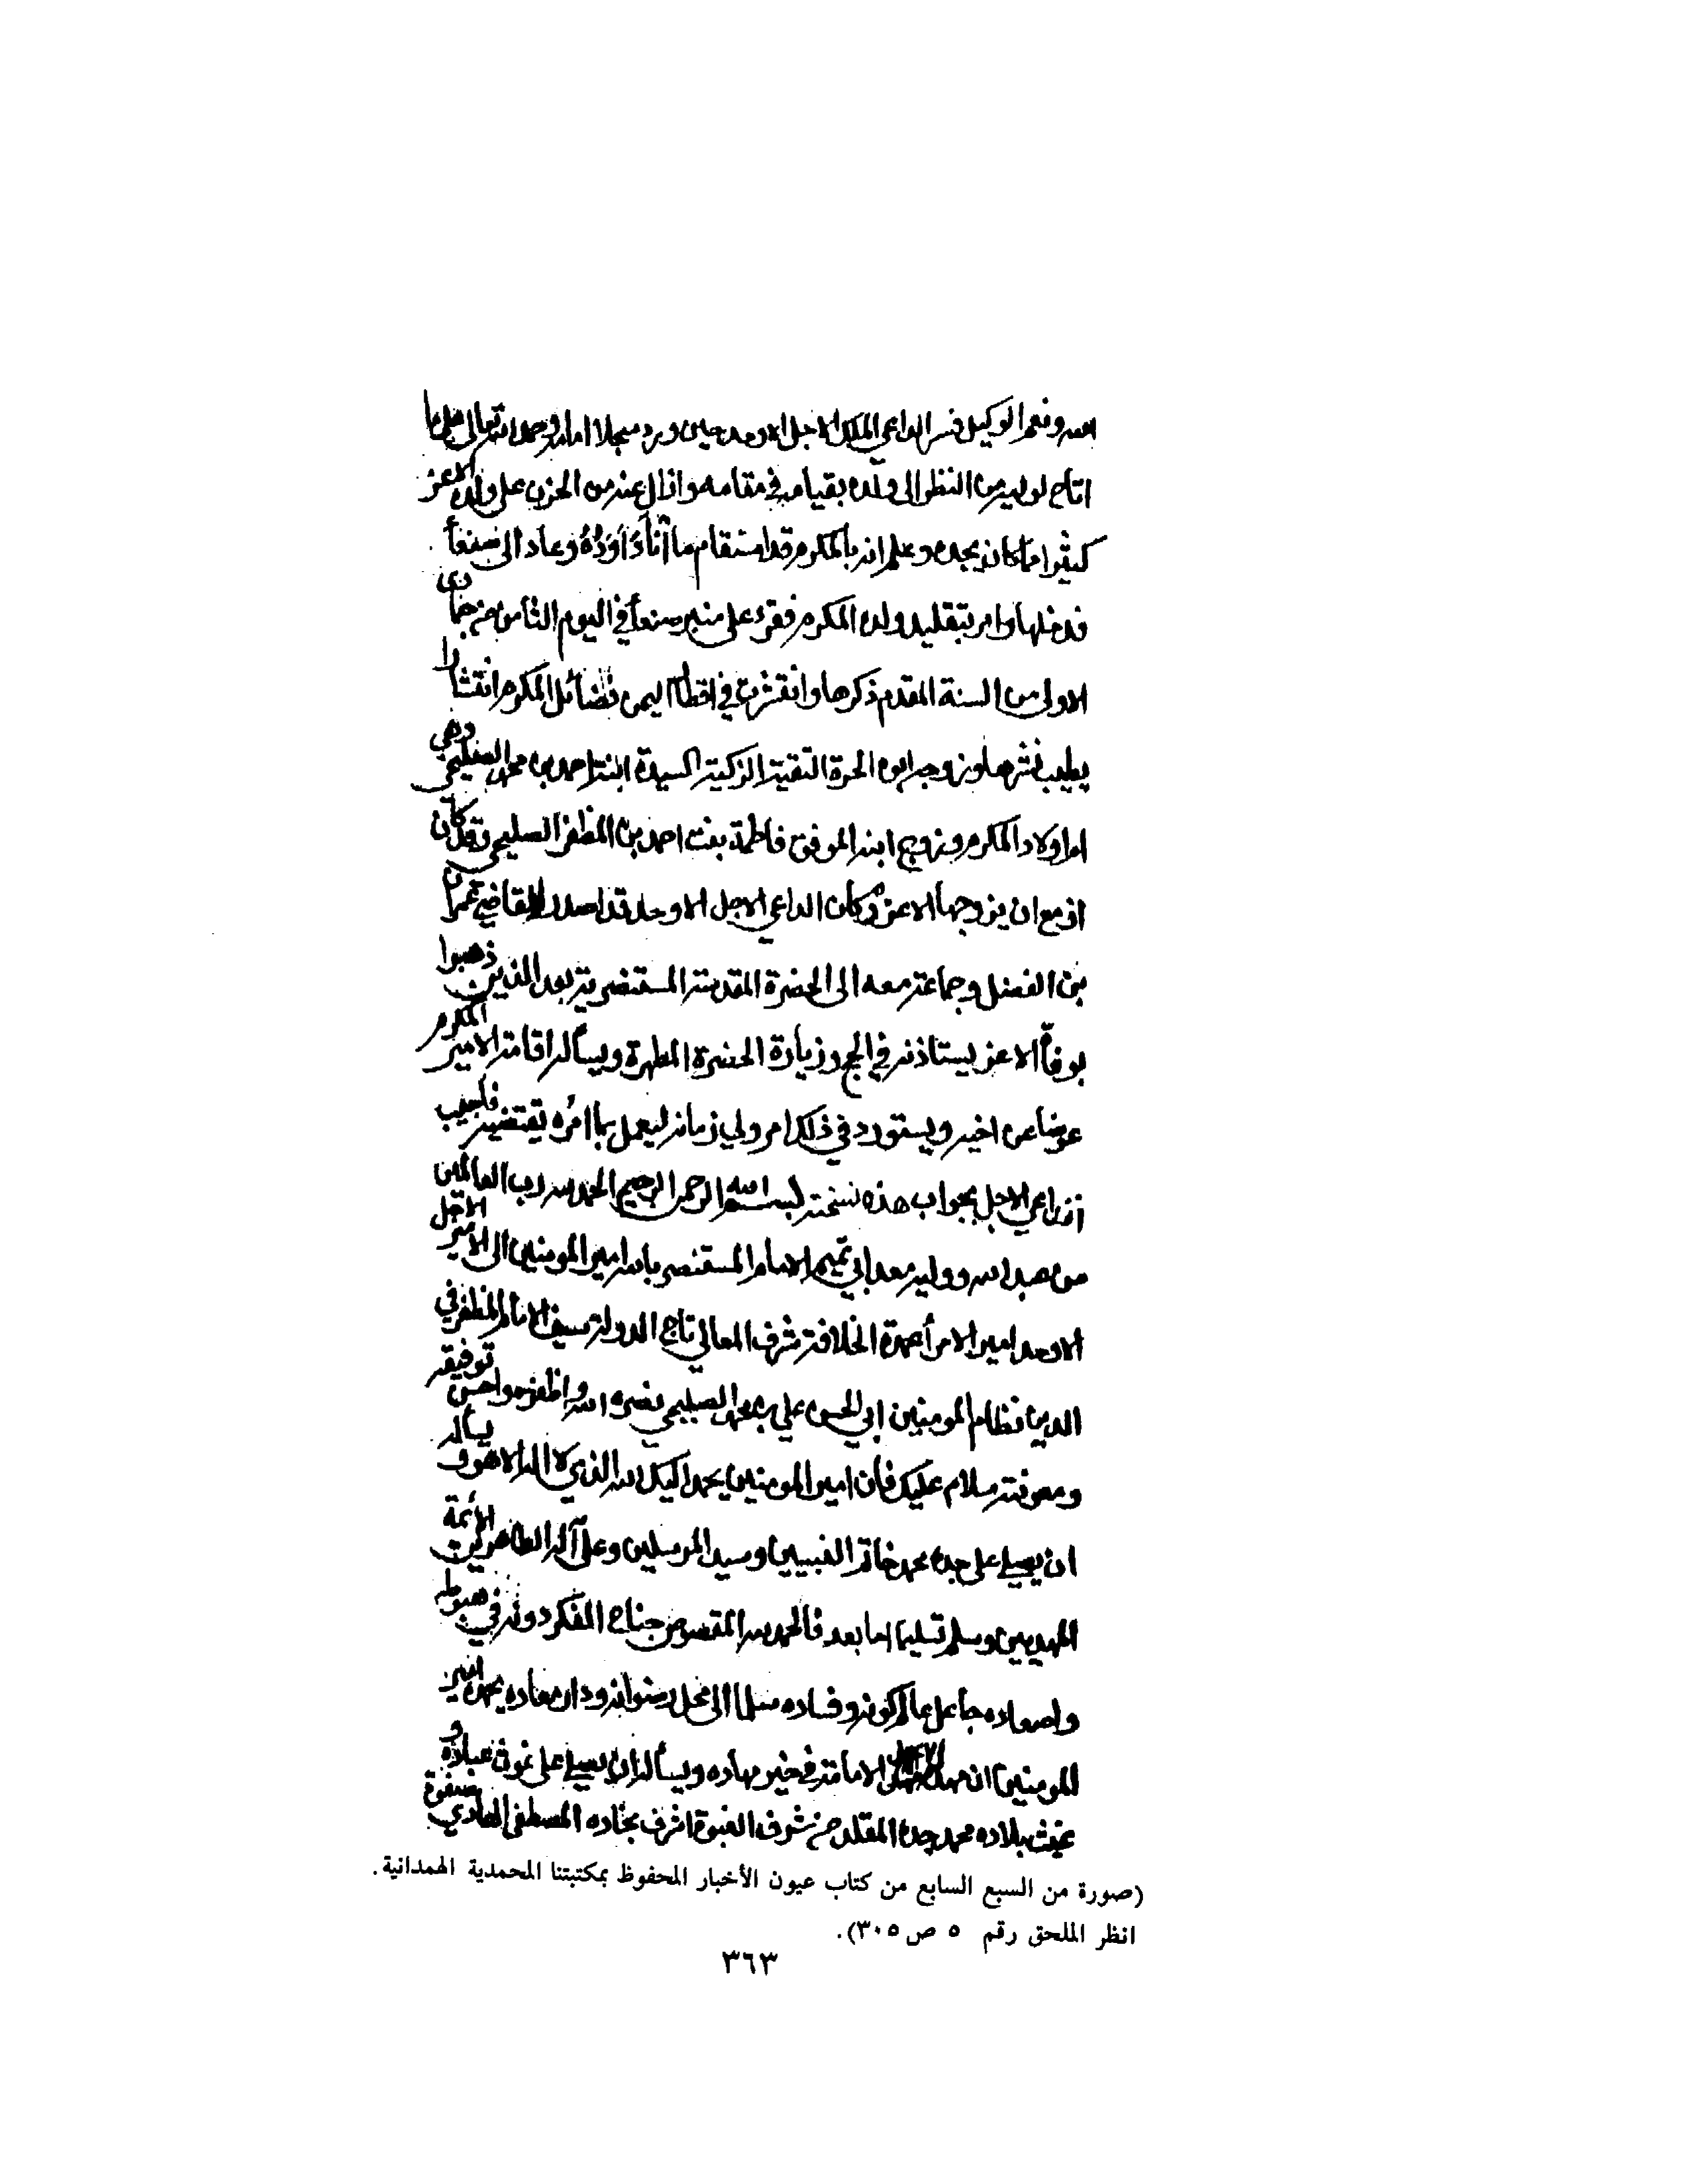 الله ونعم الوكيل فسر الداعي الملك الاجل الاوحد حين ورد سجلا امامه وحمد الله تعالى على ما
اتاح لوليه من النظر الى ولده بقيامه في مقامه وازال عنه من الحزن على ولده الاعز
كثيرا مما كان يجده وعلم انه بالمكرم قد استقام ما آناد أوده وعاد الى صنعأ
فدخلها وامر بتقليد ولده المكرم فقرئ على منبر صنعأ في اليوم الثامن من جمادى
الاولى من السنة المقدم ذكرها وانتشرت في اقطار اليمن فضائل المكرم انتشارا
يطيب نشرها وزوجه ابوه الحرة التقية الزكية السيدة ابنة احمد بن محمد الصليحي وهي
ام اولاد المكرم وزوج ابنه الموفق فاطمة بنت احمد بن المظفر الصليحي وقد كان
ازمع ان يزوجها الاعز وكان الداعي الاجل الاوحد قد اصدر القاضي عمران
بن الفضل وجماعة معه الى الحضرة المقدسة المستنصرية بعد الذين ذهبوا
بوفاة الاعز يستاذنه في الحج وزيارة الحضرة المطهرة ويسأله اقامة الامير المكرم
عوضا عن اخيه ويستورد في ذلك امر ولي زمانه ليعمل بما امره يقتضيه فاجيب
الداعي الاجل بجواب هذه نسخته بسم الله الرحمن الرحيم الحمد لله رب العالمين
من عبد الله ووليه معد ابي تميم الامام المستنصر بالله امير المومنين الى الامير الاجل
الاوحد امير الامرأ عمدة الخلافة شرف المعالي تاج الدولة سيف الامام المظفر في
الدين نظام المومنين ابي الحسن علي بن محمد الصليحي نصره الله واظفره واحسن توفيقه
ومعونته سلام عليك فان امير المومنين يحمد اليك الله الذي لا اله الا هو ويسأله
ان يصلي على جده محمد خاتم النبيين وسيد المرسلين وعلى آله الطاهرين الأئمة
المهديين وسلم تسليما اما بعد فالحمد لله المقصوص جناح الفكر دونه في هبوطه
واصعاده جاعل عالم كونه وفساده سلما الى محل رضوانه ودار معاده يحمده امير
المومنين ان مهد له الامامة في خير مهاده ويسأله ان يصلي على غوث عباده و
غيث بلاده محمد جده المقلد من شرف النبوة اشرف نجاده المصطفى الهادي صفوة
(صورة من السبع السابع من كتاب عيون الأخبار المحفوظ بمكتبتنا المحمدية الهمدانية.
انظر الملحق رقم ٥ ص ٣٠٥).
٣٦٣